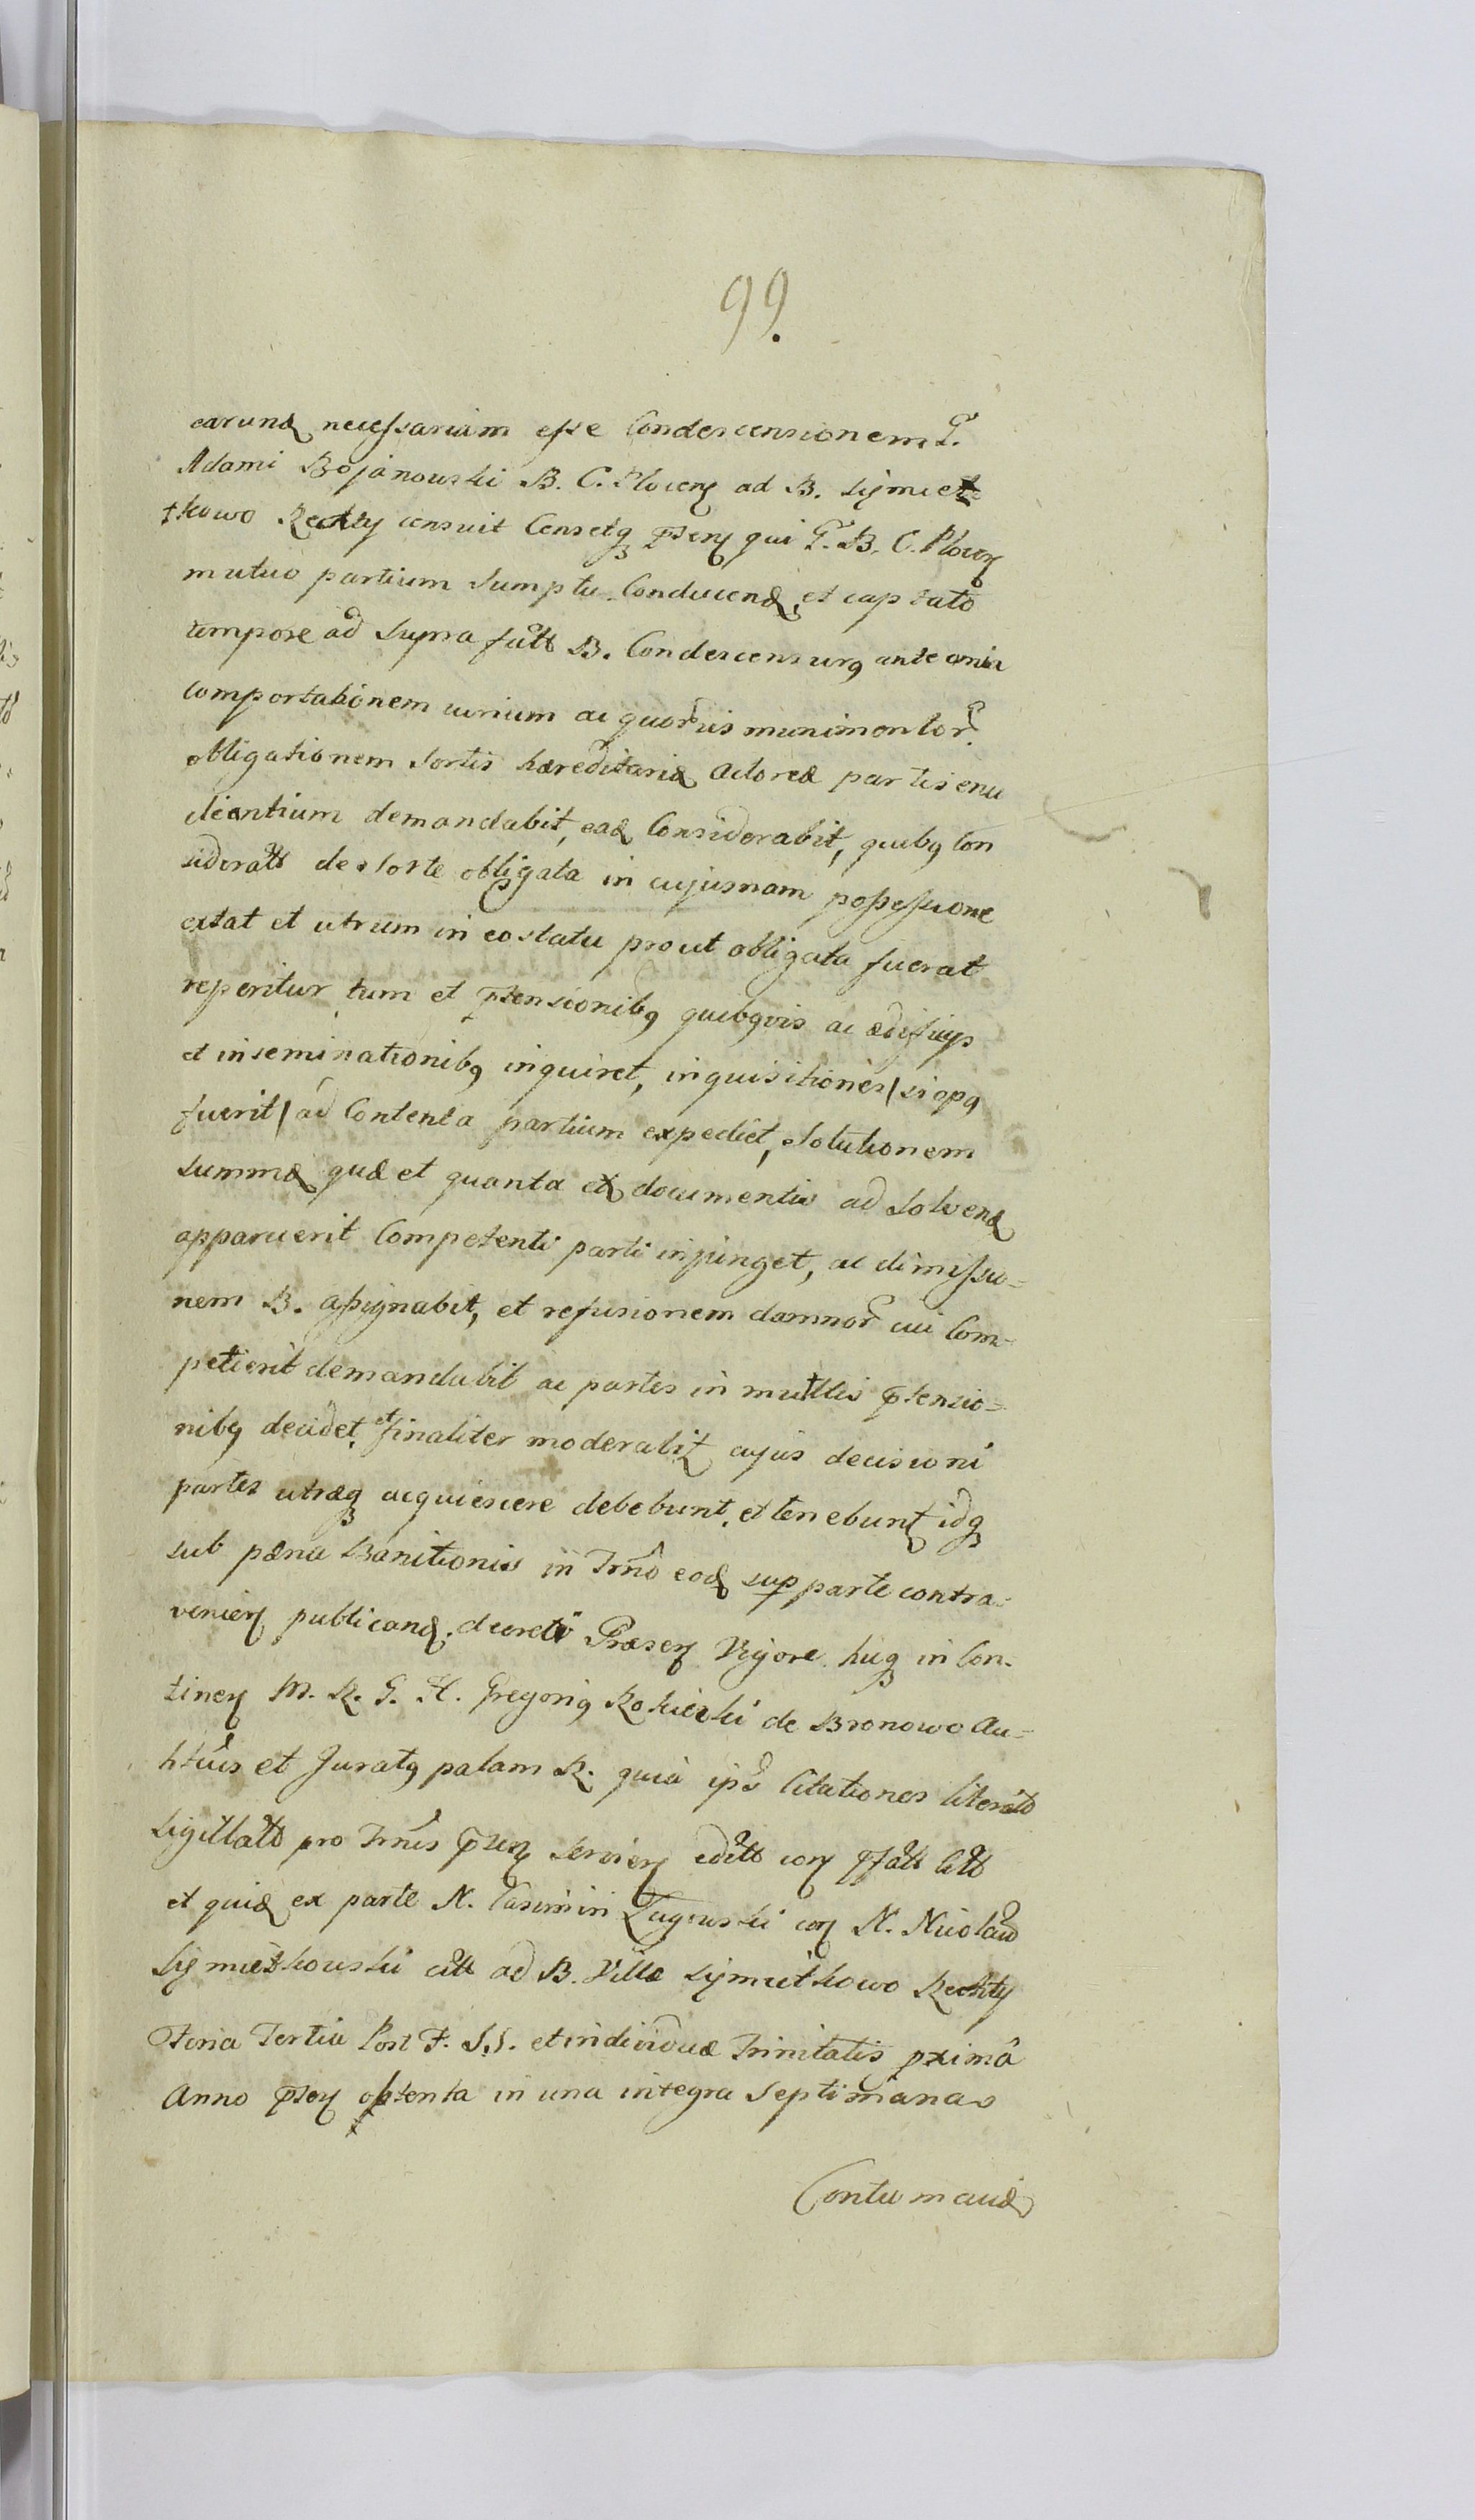 99.
earund necessarium esse Condescensionem G.
Adami Bojanowski B. C. Plocen ad B. Sijmiet
kowo Rechty censuit Censetq pnsen qui G. B. C. Plocen
mutuo partium Sumptu Conducend, et captato
tempore ad Supra fatt B. Condescensurq ante omnia
comportationem jurium ac quorvis munimentor.
obligationem Sortis hæreditariæ Actoreæ partis enu
cleantium demandabit, ead Considerabit, quibq Con
sideratt de Sorte obligata in cujusnam possessione
extat et utrum in eo statu prout obligata fuerat
reperitur tum et ptensionibq quibqvis ac ædificijs
et inseminationibq inquiret, inquisitiones / si opq
fuerit / ad Contenta partium expediet, Solutionem
Summæ quæ et quanta ex documentis ad Solvend
apparuerit Competenti parti injunget, ac dimissio=
nem B. assignabit, et refusionem damnor cui Com=
petierit demandabit ac partes in multis ptensio=
nibq decidet, et finaliter moderabit cujus decisioni
partes utræq acquiescere debebunt, et tenebunt idq
sub pæna Banitionis in Trno eod sup parte contra=
venien publicand. decreti Præsen Vigore. huq in Con=
tinen M. R. G. H. Gregoriq Rokicki de Bronowo Au=
htius et Juratq palam R. quia ips Citationes literatt
Sigillatt pro Trnis pnsen servien editt con pfatt Citt
et quid ex parte N. Casimiri Lugowski con N. Nicolaum
Sijmietkowski citt ad B. Villæ Sijmietkowo Rechty
Feria Tertia Post F. S.S. et individuæ Trinitatis pximâ
Anno pnsen obtenta in una integra Septimana
Contumaciæ